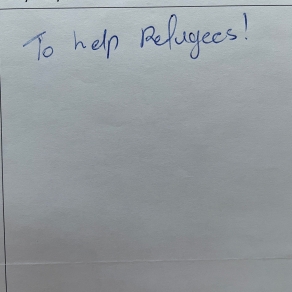 To help Refugees!